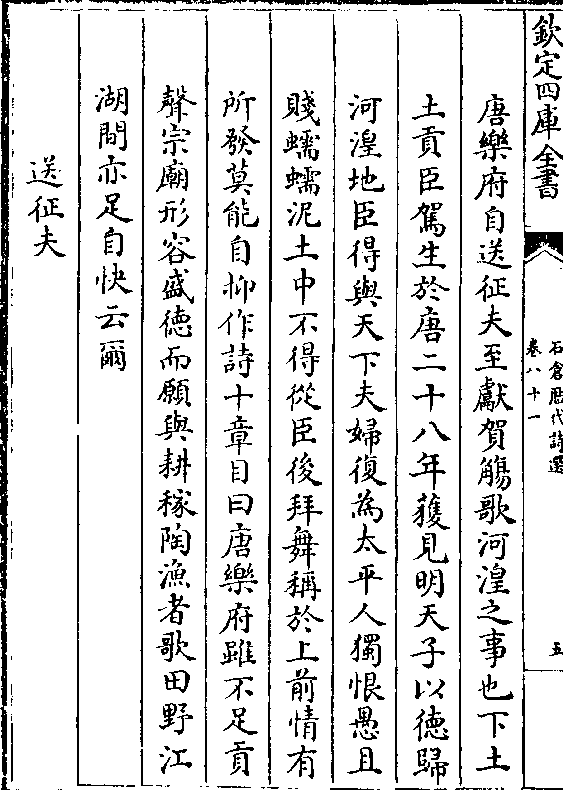 欽定四庫全書
石倉歴代詩選
卷八十一
五
唐樂府自送征夫至獻賀觴歌河湟之事也下土
土貢臣駕生於唐二十八年獲見明天子以德歸
河湟地臣得與天下夫婦復為太平人獨恨愚且
賤蠕蠕泥土中不得從臣後拜舞稱於上前情有
所發莫能自抑作詩十章目曰唐樂府雖不足貢
聲宗廟形容盛徳而願與耕稼陶漁者歌田野江
湖間亦足自快云爾
送征夫